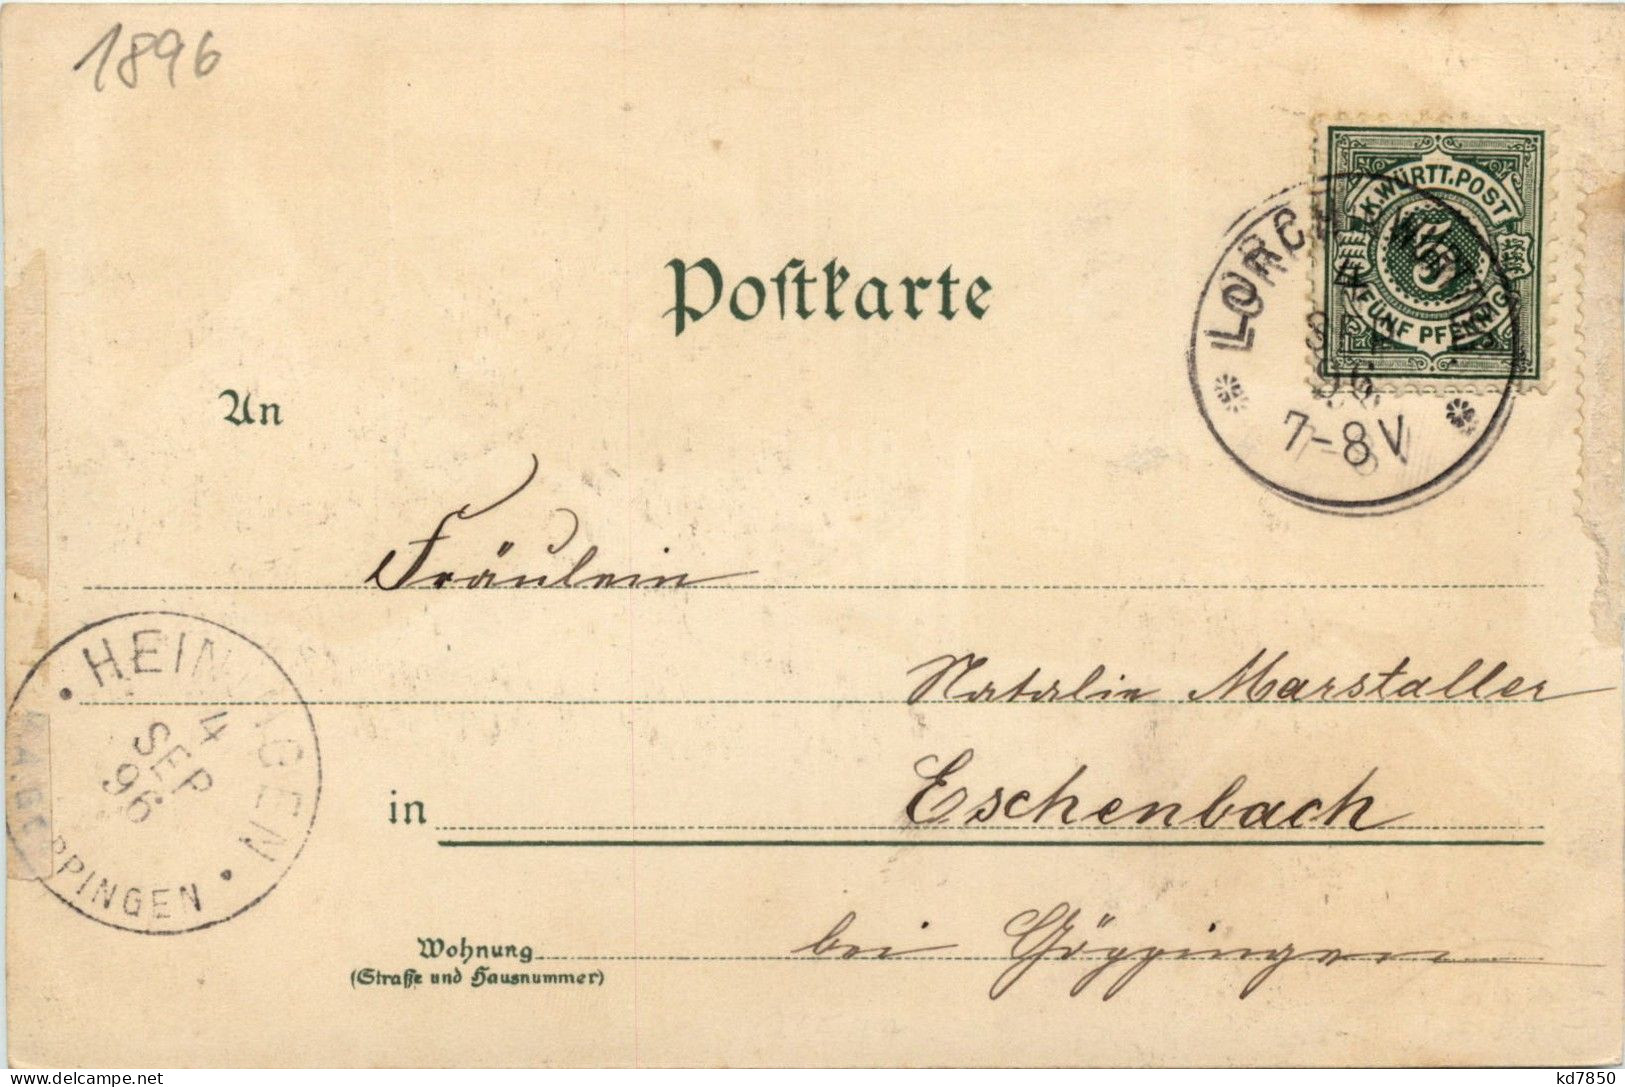 1896
K.WÜRTT.POST
5
FÜNF PFENNIG
LORCH
4
SEP
96
7-8 V
Postkarte
An
Fräulein
Natalie Marstaller
in Eschenbach
HEININGEN
4
SEP
96
PPINGEN
Wohnung bei Göppingen
(Straße und Hausnummer)
kd7850